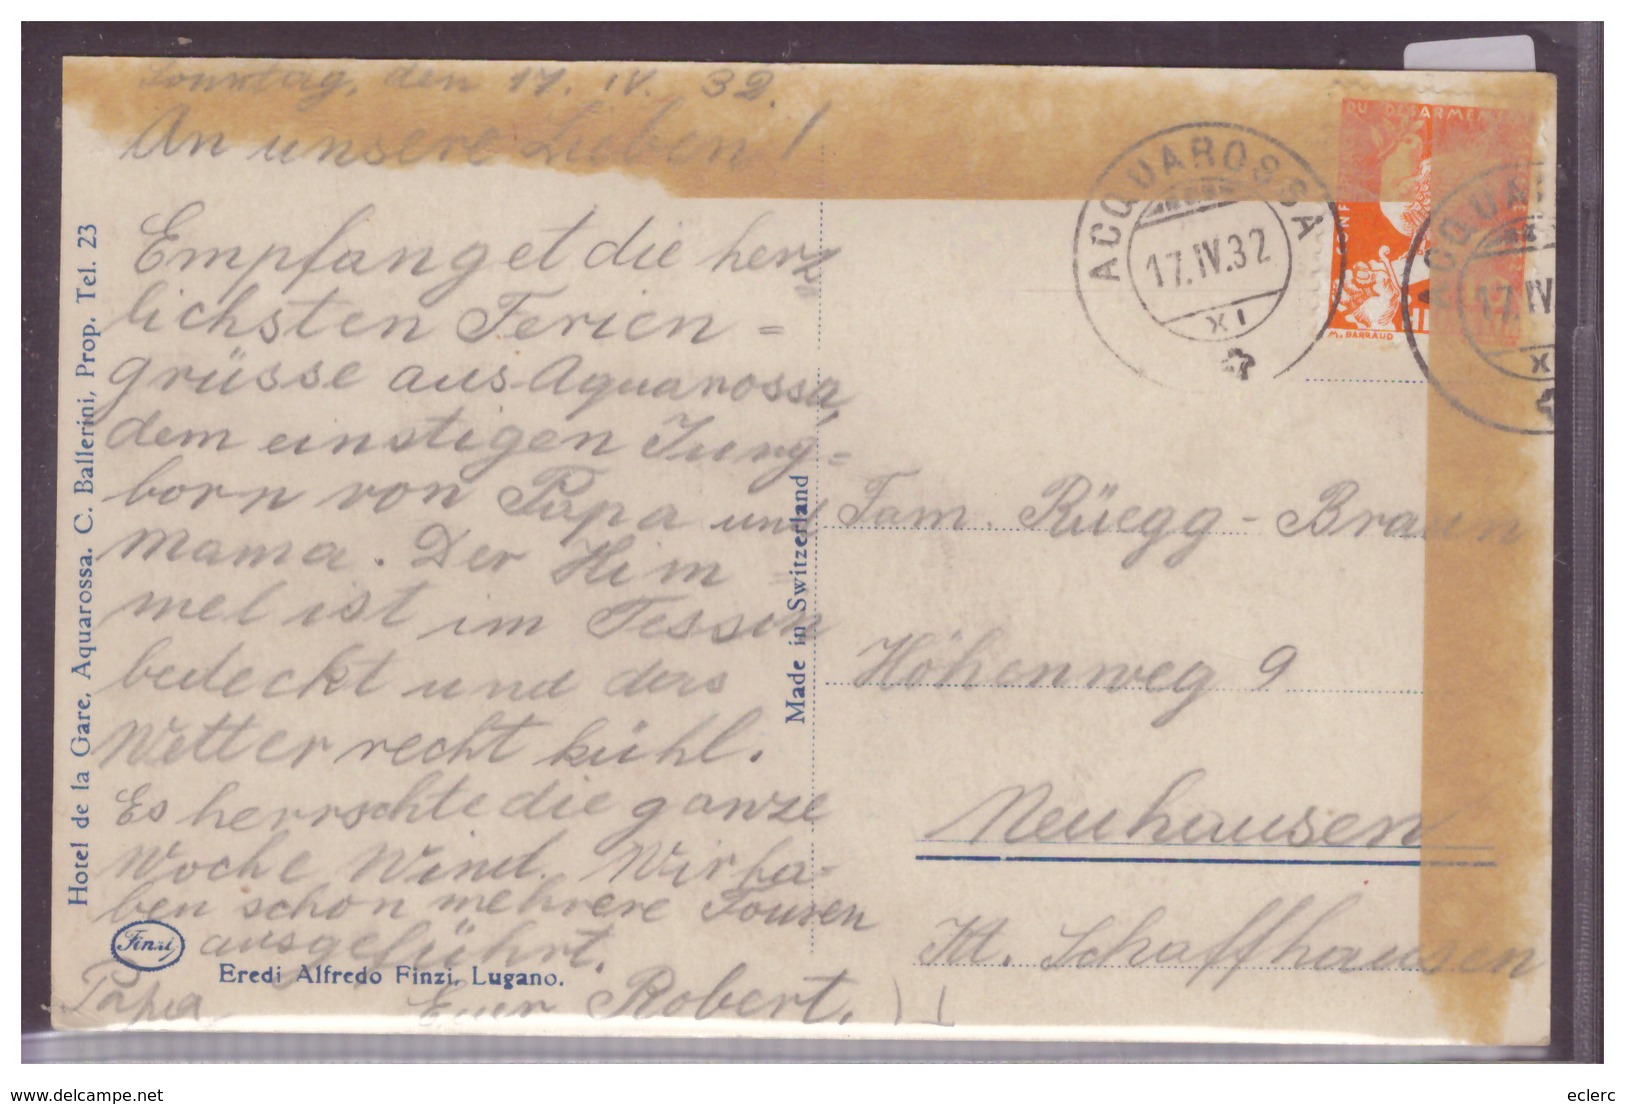 Sonntag, den 17. IV. 32.
An unsere Lieben!
Empfanget die herz
lichsten Ferien =
grüsse aus Aquarossa,
dem einstigen Jung=
born von Papa und
Mama. Der Him =
mel ist im Tessin
bedeckt und das
Wetter recht kühl.
Es herrschte die ganze
Woche Wind. Wir ha-
ben schon mehrere Touren
ausgeführt.
Papa
Euer Robert.
Hotel de la Gare, Aquarossa. C. Ballerini, Prop. Tel. 23
Finzi
Eredi Alfredo Finzi, Lugano.
Made in Switzerland
ACQUAROSSA
17.IV.32
XI
DU DÉSARMEMENT
CONF
M. BARRAUD
ACQUA
17.IV
XI
Fam. Rüegg - Braun
Höhenweg 9
Neuhausen
Kt. Schaffhausen
www.delcampe.net
eclerc